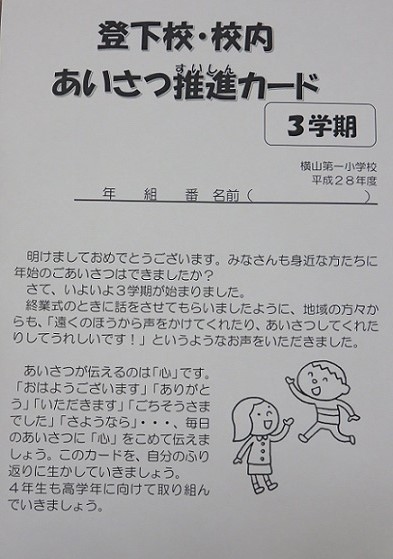 登下校・校内
あいさつ推進カード
すいしん
3学期
横山第一小学校
平成28年度
年　組　番 名前（　　　　　　）
明けましておめでとうございます。みなさんも身近な方たちに
年始のごあいさつはできましたか？
さて、いよいよ3学期が始まりました。
終業式のときに話をさせてもらいましたように、地域の方々か
らも、「遠くのほうから声をかけてくれたり、あいさつしてくれた
りしてうれしいです！」というようなお声をいただきました。
あいさつが伝えるのは「心」です。
「おはようございます」「ありがと
う」「いただきます」「ごちそうさま
でした」「さようなら」・・・、毎日
のあいさつに「心」をこめて伝えま
しょう。このカードを、自分のふり
返りに生かしていきましょう。
4年生も高学年に向けて取り組ん
でいきましょう。